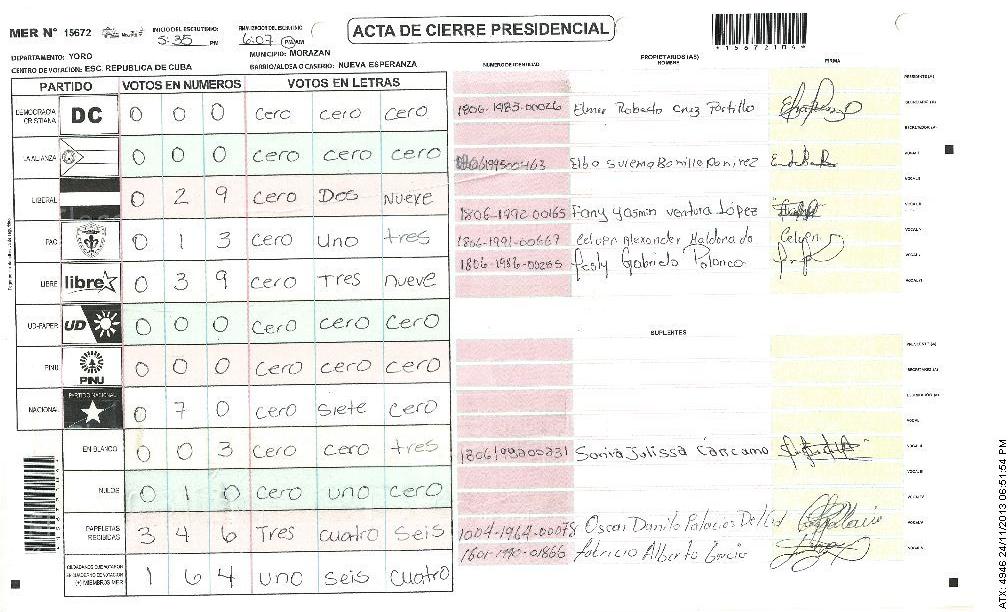 MER N° 15672
INICIO DEL ESCRUTINIO
5:35 PM
FINALIZACION DEL ESCRUTINIO
6:07 PM AM
ACTA DE CIERRE PRESIDENCIAL
*15672104*
DEPARTAMENTO: YORO
MUNICIPIO: MORAZAN
CENTRO DE VOTACION: ESC. REPUBLICA DE CUBA
BARRIO/ALDEA O CASERIO: NUEVA ESPERANZA
PARTIDO VOTOS EN NUMEROS VOTOS EN LETRAS
DEMOCRACIA CRISTIANA DC 0 0 0 cero cero cero
LA ALIANZA 0 0 0 cero cero cero
LIBERAL 0 2 9 cero Dos Nueve
PAC 0 1 3 cero uno tres
LIBRE libre 0 3 9 cero Tres nueve
UD-FAPER UD 0 0 0 cero cero cero
PINU PINU 0 0 0 cero cero cero
NACIONAL PARTIDO NACIONAL 0 7 0 cero siete cero
EN BLANCO 0 0 3 cero cero tres
NULOS 0 1 0 cero uno cero
PAPELETAS RECIBIDAS 3 4 6 Tres cuatro seis
CIUDADANOS QUE VOTARON EN CUADERNO DE VOTACION (+) MIEMBROS MER 1 6 4 uno seis cuatro
PROPIETARIOS (AS)
NUMERO DE IDENTIDAD NOMBRE FIRMA
PRESIDENTE (A)
1806-1983-00026 Elmer Roberto Cruz Portillo
SECRETARIO (A)
ESCRUTADOR (A)
Elba Bonilla Ramirez
VOCAL I
VOCAL II
1806-1992 00165 Fany Yasmin Ventura López
VOCAL III
1806-1991-00667 Celvin Alexander Maldonado Celvin
VOCAL IV
Gabriela Polanco
VOCAL V
VOCAL VI
SUPLENTES
PRESIDENTE (A)
SECRETARIO (A)
ESCRUTADOR (A)
VOCAL I
Sonia Julissa Carcamo
VOCAL II
VOCAL III
VOCAL IV
1004-1964-00078 Oscar Danilo Palacios Del Cid
VOCAL V
1601-1990-01866 Fabricio Alberto Garcia
VOCAL VI
ATX: 4946 24/11/2013 06:51:54 PM